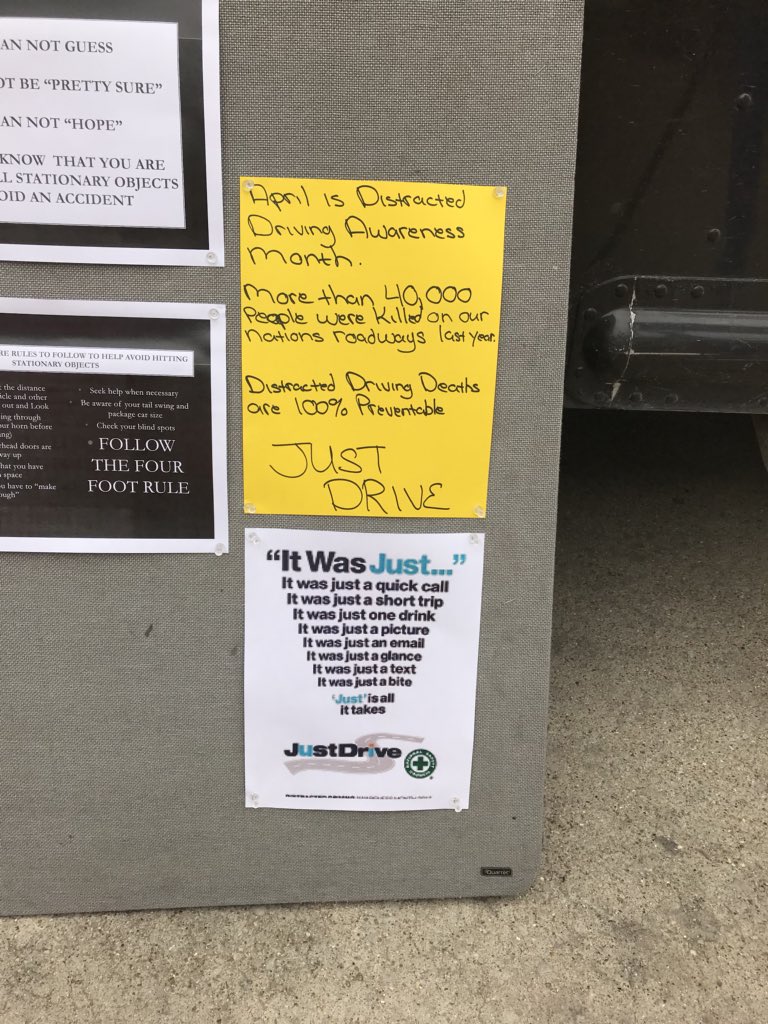 AN NOT GUESS
OT BE “PRETTY SURE”
AN NOT “HOPE”
KNOW THAT YOU ARE
LL STATIONARY OBJECTS
OID AN ACCIDENT
RE RULES TO FOLLOW TO HELP AVOID HITTING
STATIONARY OBJECTS
t the distance
icle and other
out and Look
ing through
ur horn before
ng)
rhead doors are
way up
hat you have
space
u have to “make
ough”
• Seek help when necessary
• Be aware of your tail swing and
package car size
• Check your blind spots
• FOLLOW
THE FOUR
FOOT RULE
April is Distracted
Driving Awareness
Month.
More than 40,000
People were Killed on our
nations roadways last year.
Distracted Driving Deaths
are 100% Preventable
JUST
DRIVE
“It Was Just...”
It was just a quick call
It was just a short trip
It was just one drink
It was just a picture
It was just an email
It was just a glance
It was just a text
It was just a bite
‘Just’ is all
it takes
JustDrive
Quartet